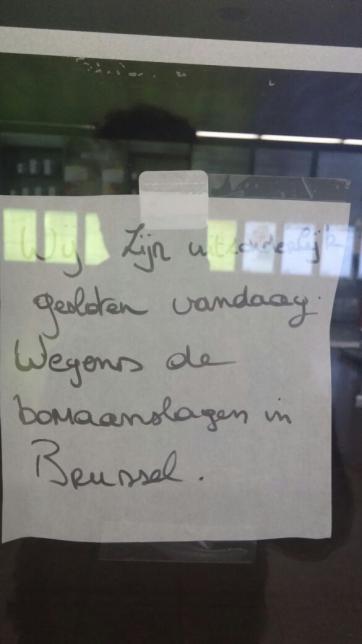 Wij zijn uitsonderlijk
gesloten vandaag.
Wegens de
bomaanslagen in
Brussel.